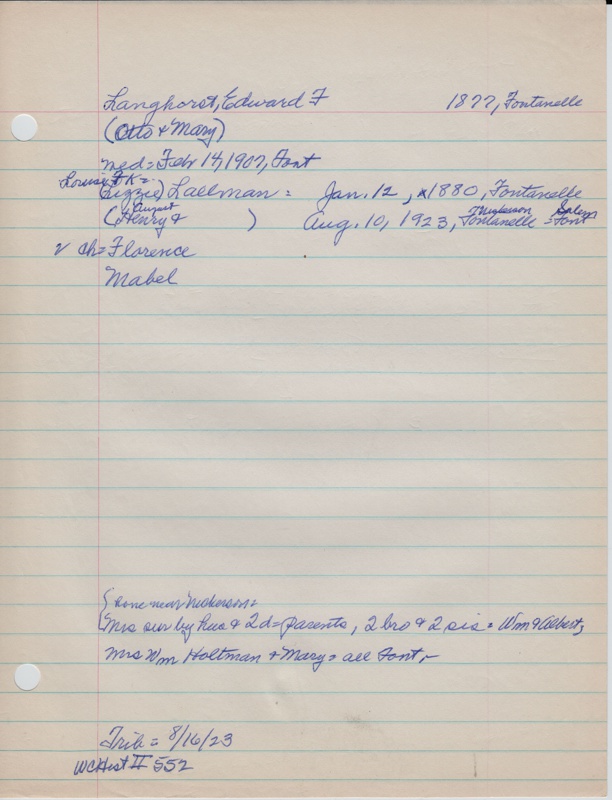 Langhorst, Edward F 1877, Fontanelle
(Otto & Mary)
med = Feb 14, 1907, Font
Louise K =
(Lizzie) Lallman = Jan. 12, 1880, Fontanelle
August Nickerson Salem
(Henry & ) Aug. 10, 1923, Fontanelle = Font
v ch = Florence
Mabel
near Nickerson =
Mrs sur by hus & 2 d = parents, 2 bro & 2 sis = Wm & Albert,
Mrs Wm Holtman & Mary = all Font,
Trib = 8/16/23
WCHist II 552